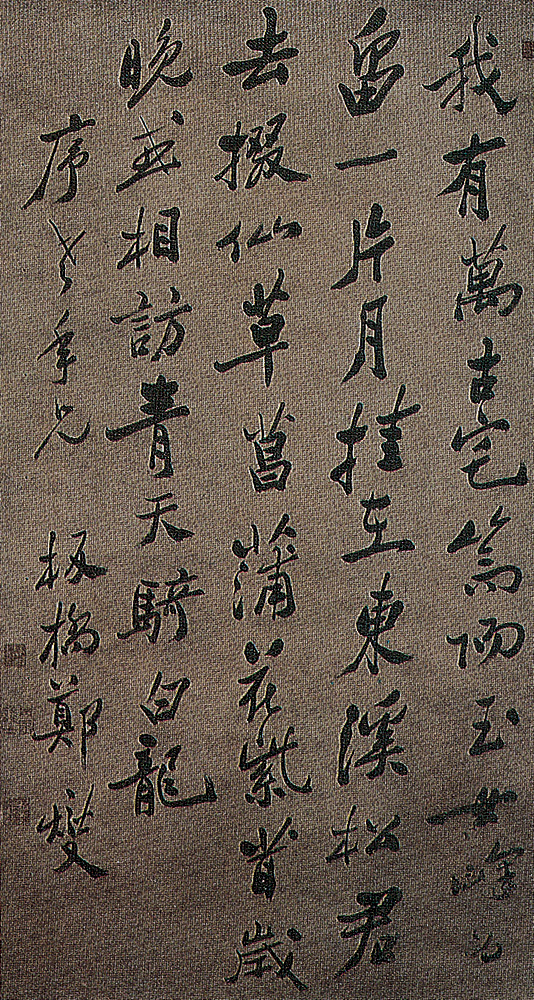 我有萬古宅嵩陽玉女峰長
留一片月挂在東溪松君
去掇仙草菖蒲花紫茸歲
晚或相訪青天騎白龍
序老年兄 板橋鄭燮